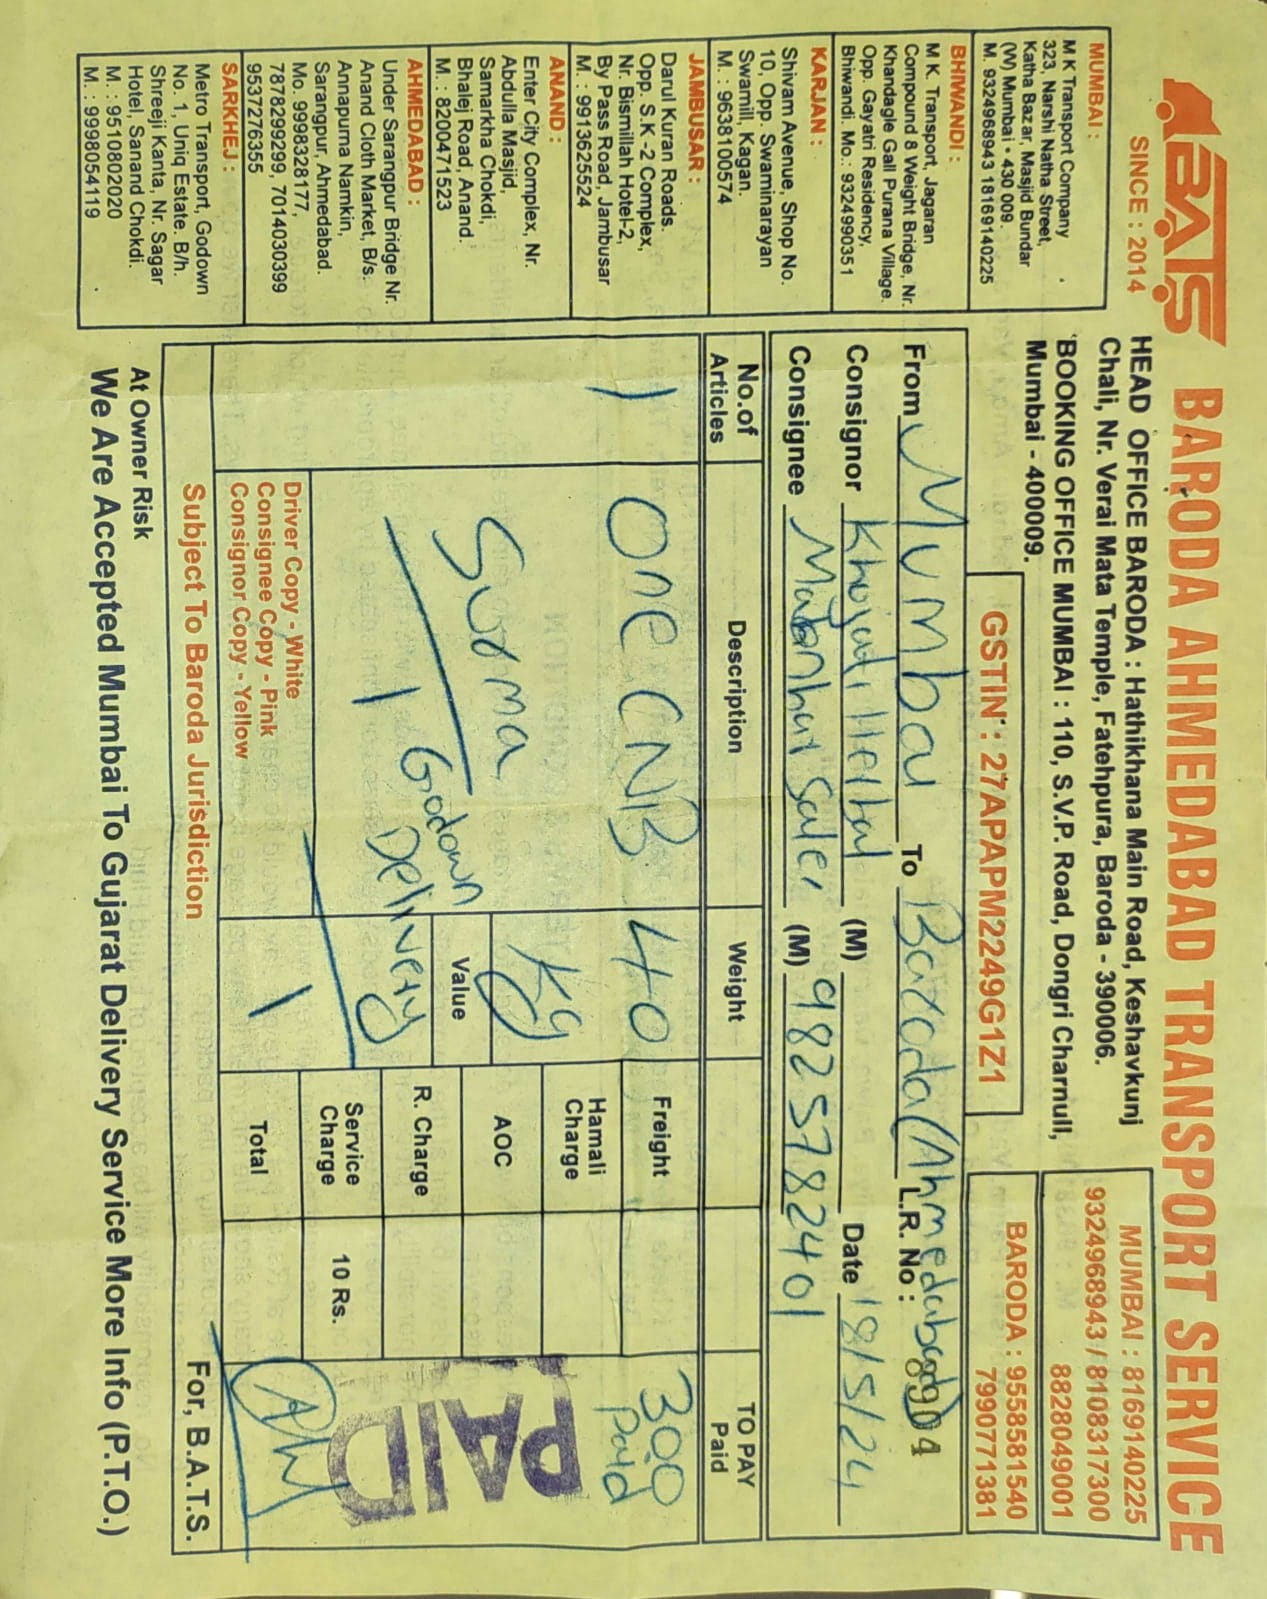 BATS
SINCE : 2014
BARODA AHMEDABAD TRANSPORT SERVICE
HEAD OFFICE BARODA : Hathikhana Main Road, Keshavkunj
Chali, Nr. Verai Mata Temple, Fatehpura, Baroda - 390006.
BOOKING OFFICE MUMBAI : 110, S.V.P. Road, Dongri Charnull,
Mumbai - 400009.
MUMBAI : 8169140225
9324968943 / 8108317300
8828049001
GSTIN : 27APAPM2249G1Z1
BARODA : 9558581540
7990771381
MUMBAI :
M K Transport Company
323, Narshi Natha Street,
Katha Bazar, Masjid Bundar
(W) Mumbai - 430 009.
M. 9324968943 18169140225
BHIWANDI :
M K. Transport, Jagaran
Compound 8 Weight Bridge, Nr.
Khandagle Gali Purana Village.
Opp. Gayatri Residency,
Bhiwandi. Mo.: 9324990351
KARJAN :
Shivam Avenue, Shop No.
10, Opp. Swaminarayan
Swamill, Kagan.
M. : 9638100574
JAMBUSAR :
Darul Kuran Roads.
Opp. S.K -2 Complex,
Nr. Bismillah Hotel-2,
By Pass Road, Jambusar
M. : 9913625524
ANAND :
Enter City Complex, Nr.
Abdulla Masjid,
Samarkha Chokdi,
Bhalej Road, Anand.
M. : 8200471523
AHMEDABAD :
Under Sarangpur Bridge Nr.
Anand Cloth Market, B/s.
Annapurna Namkin,
Sarangpur, Ahmedabad.
Mo. 9998328177,
7878299299, 7014030399
9537276355
SARKHEJ :
Metro Transport, Godown
No. 1, Uniq Estate. B/h.
Shreeji Kanta, Nr. Sagar
Hotel, Sanand Chokdi.
M. : 9510802020
M. : 9998054119
From Mumbai To Baroda/Ahmedabad L.R. No :
Consignor (M) Date 18/5/24
Consignee Sales (M) 9825782401
No.of Articles Description Weight TO PAY Paid
1 One CNB 40 Kg Freight 300 Paid
Surma
Hamali Charge
AOC
Value
1 Godown Delivery
R. Charge
Service Charge 10 Rs.
Total
PAID
PAID
Driver Copy - White
Consignee Copy - Pink
Consignor Copy - Yellow
Subject To Baroda Jurisdiction
For, B.A.T.S.
At Owner Risk
We Are Accepted Mumbai To Gujarat Delivery Service More Info (P.T.O.)